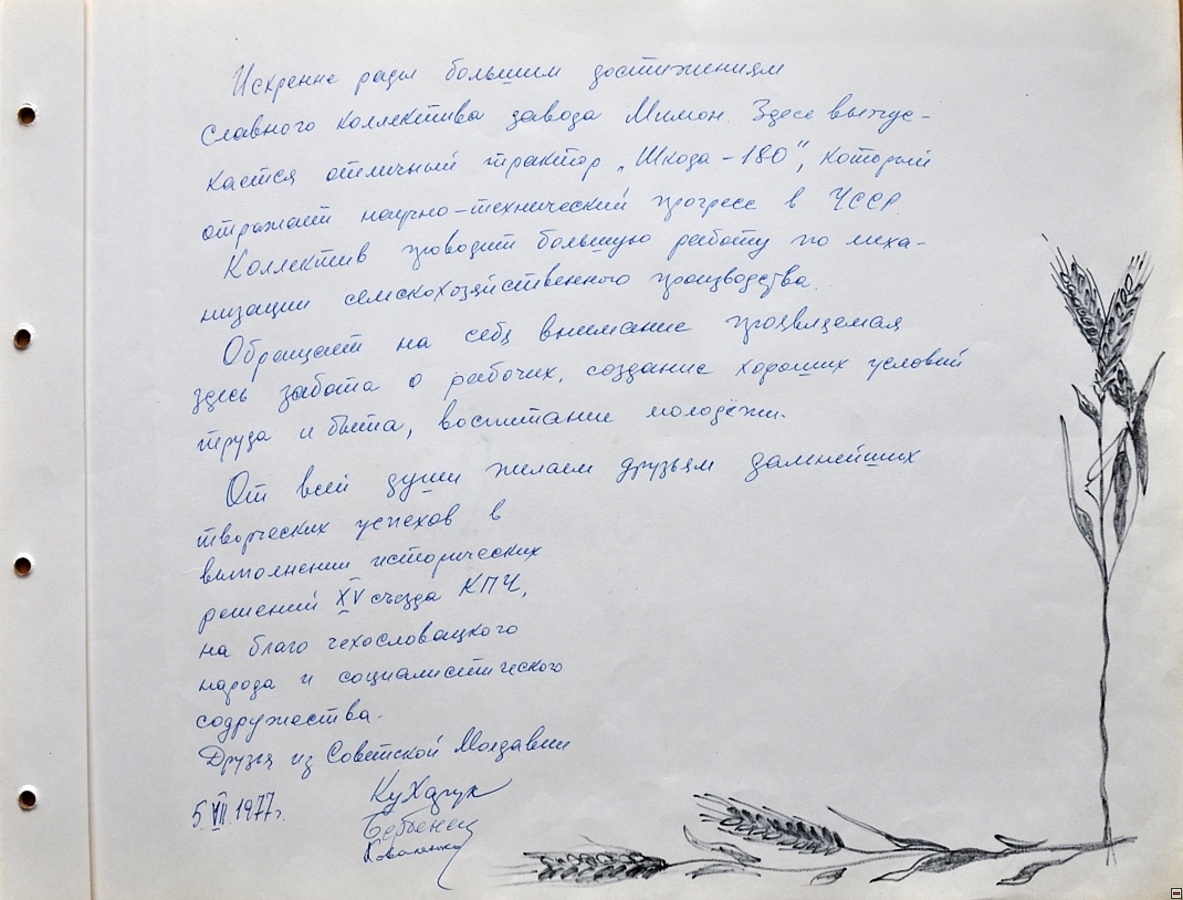 Искренне рады большим достижениям
славного коллектива завода Мимон. Здесь выпус-
кается отличный трактор „Шкода-180", который
отражает научно-технический прогресс в ЧССР.
Коллектив проводит большую работу по меха-
низации сельскохозяйственного производства.
Обращает на себя внимание проявляемая
здесь забота о рабочих, создание хороших условий
труда и быта, воспитание молодёжи.
От всей души желаем друзьям дальнейших
творческих успехов в
выполнении исторических
решений XV съезда КПЧ,
на благо чехословацкого
народа и социалистического
содружества.
Друзья из Советской Молдавии
5.VII.1977г.
Коваленко